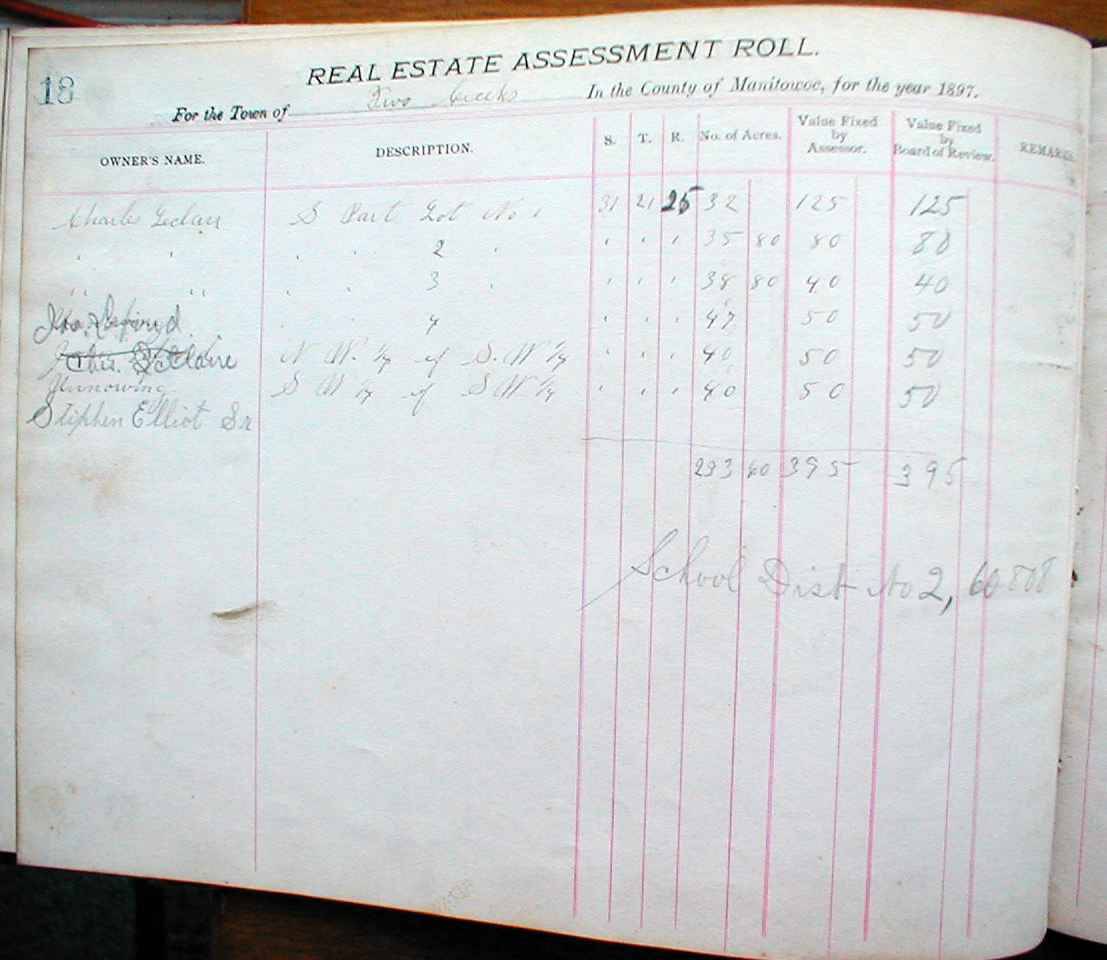 18
REAL ESTATE ASSESSMENT ROLL.
For the Town of Two Creeks In the County of Manitowoc, for the year 1897.
OWNER'S NAME. DESCRIPTION. S. T. R. No. of Acres. Value Fixed by Assessor. Value Fixed by Board of Review. REMARKS.
Charles Leclair S Part Lot No 1 31 21 25 32 125 125
" " " " 2 " " " " 35 80 80 80
" " " " 3 " " " " 38 80 40 40
" " 4 " " " 47 50 50
Chas. LeClaire N W. 1/4 of S. W 1/4 " " " 40 50 50
S W 1/4 of S W 1/4 " " " 40 50 50
Stiphen Elliot Sr
233 60 395 395
School Dist No 2, 60 808